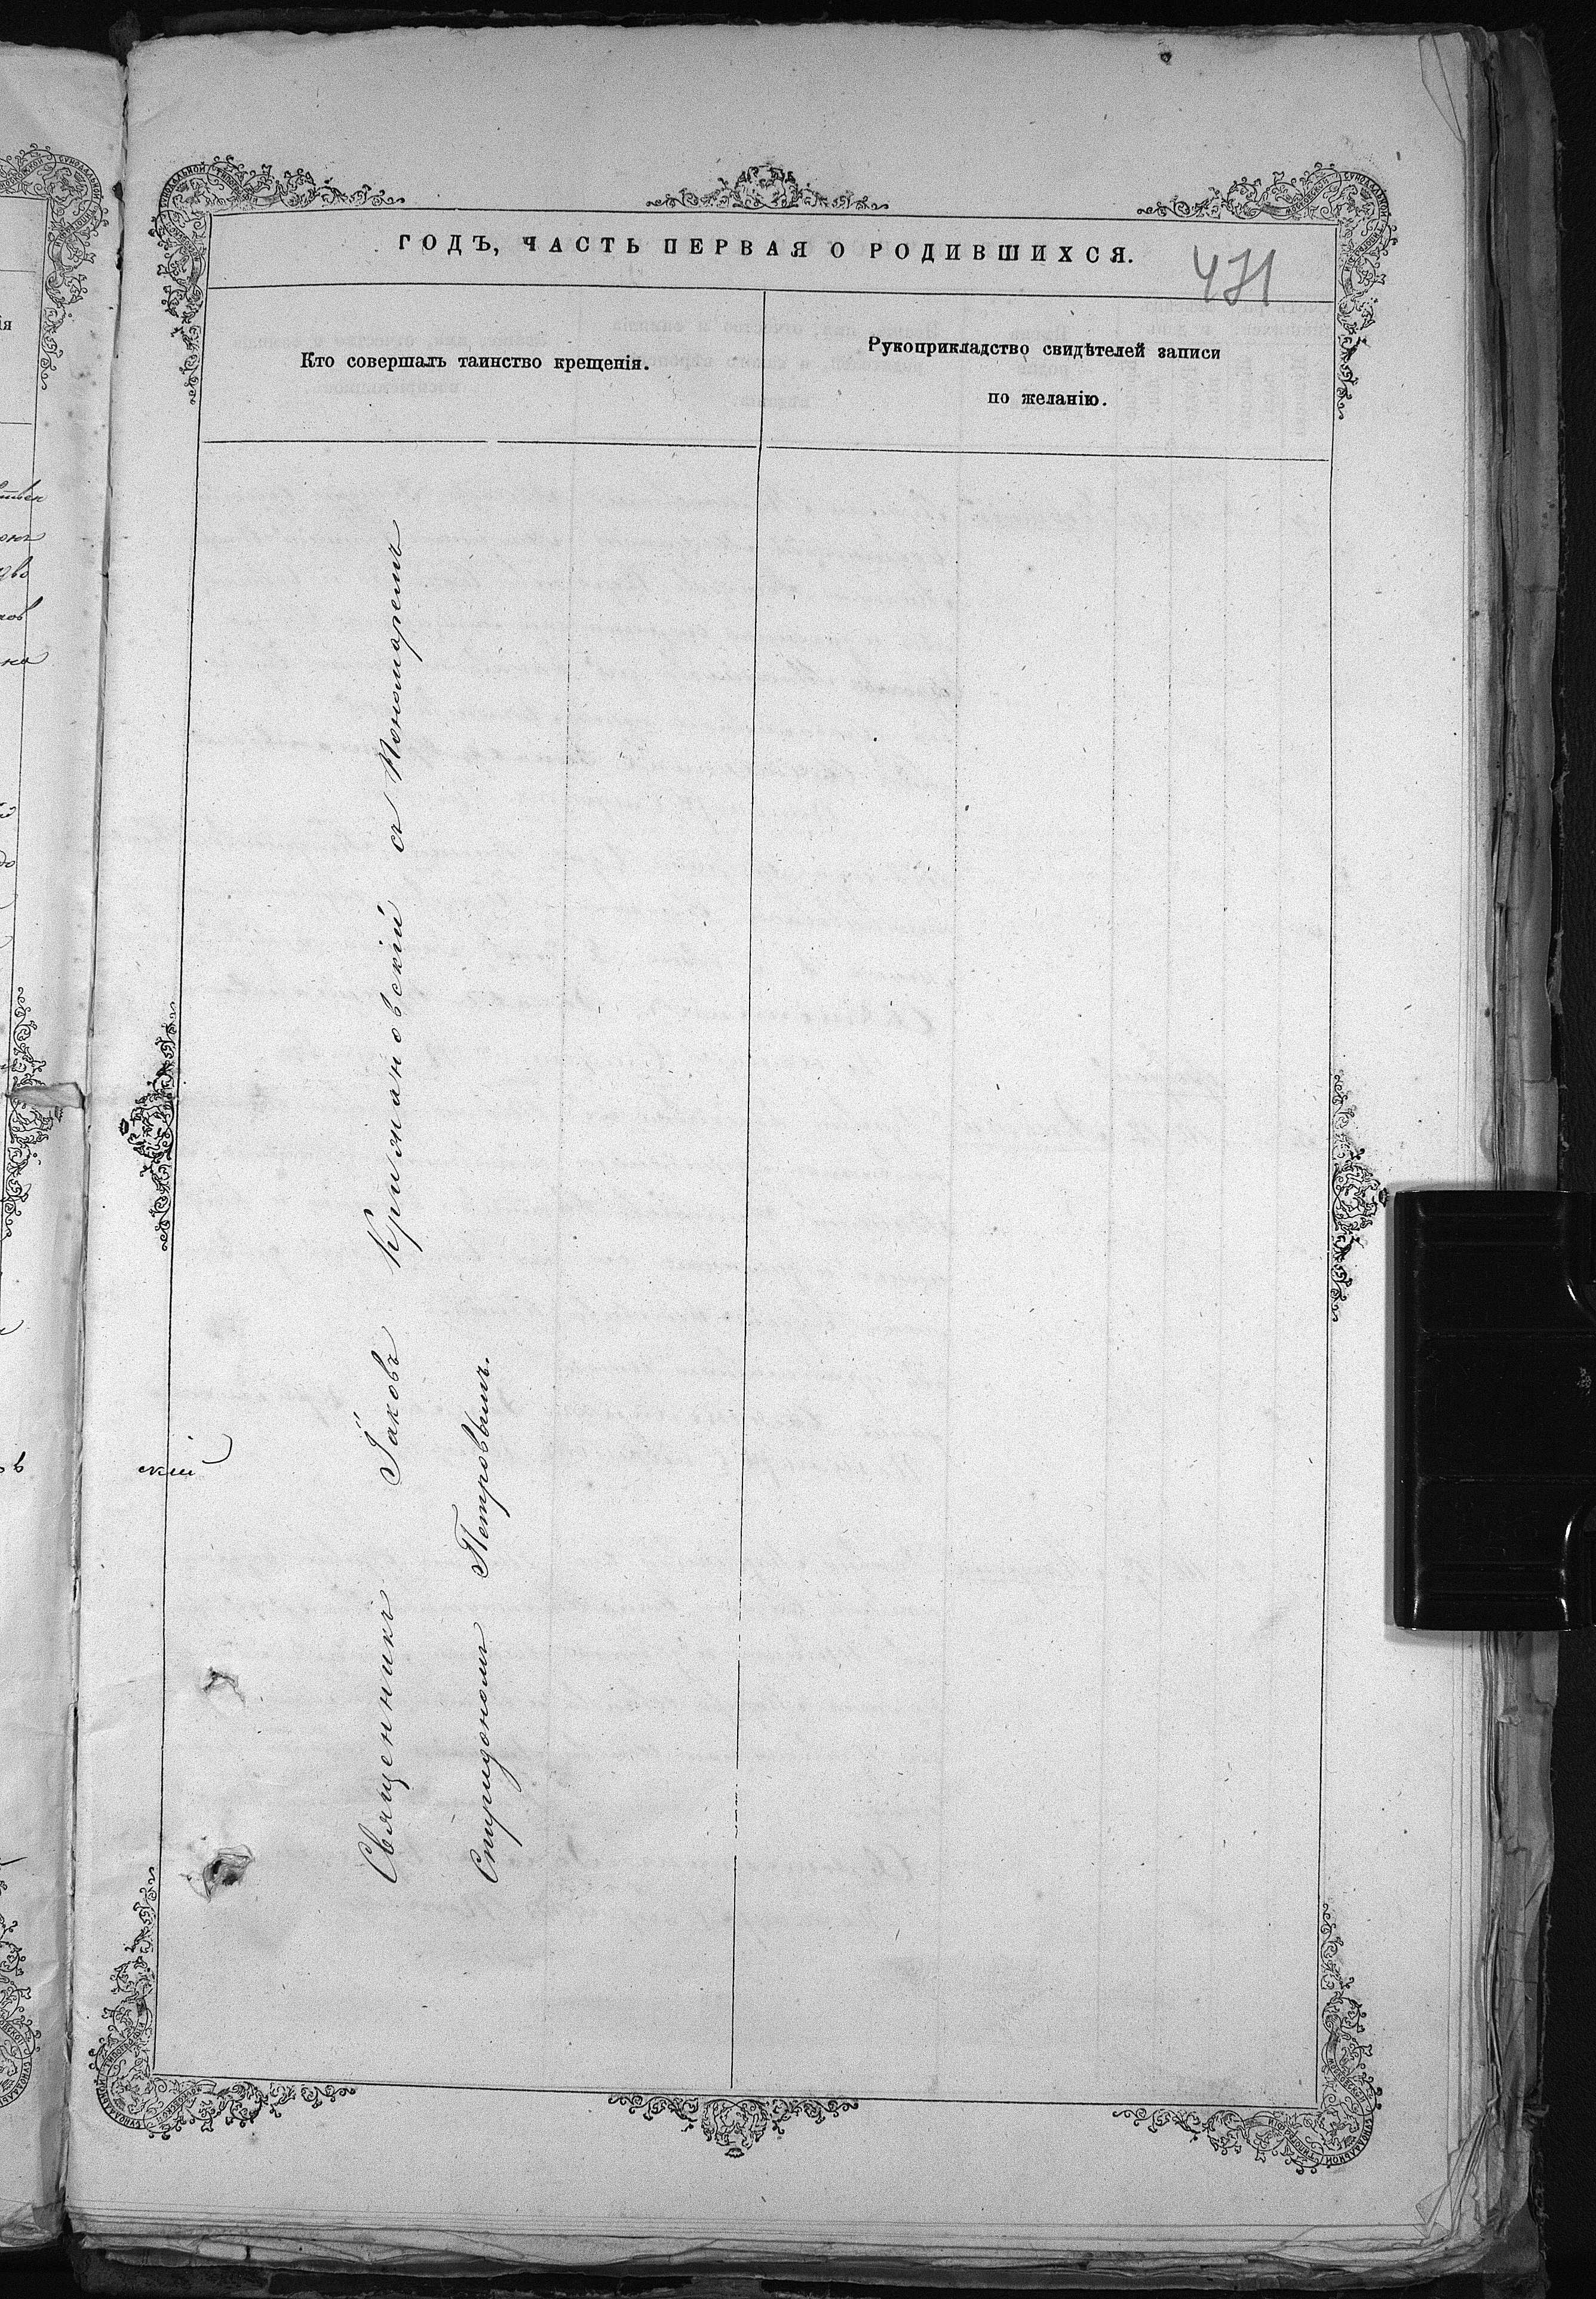 ГОДЪ, ЧАСТЬ ПЕРВАЯ О РОДИВШИХСЯ.
471
Кто совершалъ таинство крещенія.
Рукоприкладство свидѣтелей записи
по желанію.
Священникъ Іаковъ Крижановскій съ Пономаремъ
Спиридономъ Петровымъ.
скій